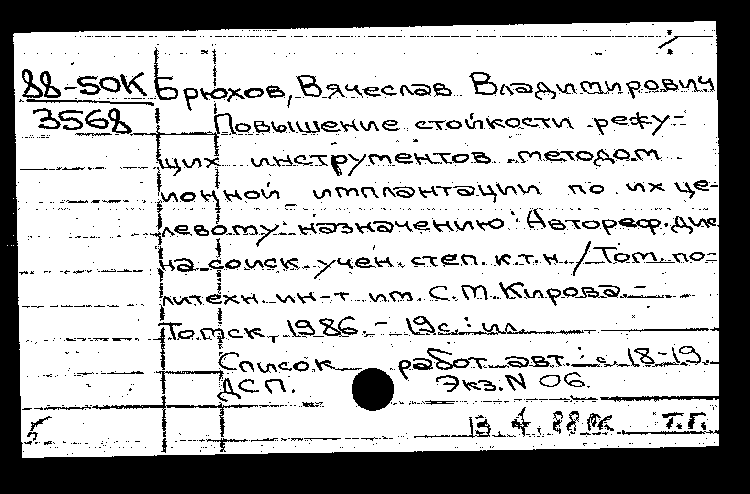 88-50К Брюхов, Вячеслав Владимирович
3568 Повышение стойкости рефу-
щих инструментов методом
ионной имплантации по их це-
левому назначению: Автореф. дис
на соиск. учен. степ. к.т.н / Том. по-
литехн. ин-т им. С.М. Кирова. -
Томск, 1986. - 19с.: ил.
Список работ авт.: с. 18-19.
ДСП. Экз. N 06.
5. 13.4.88 Т.Г.